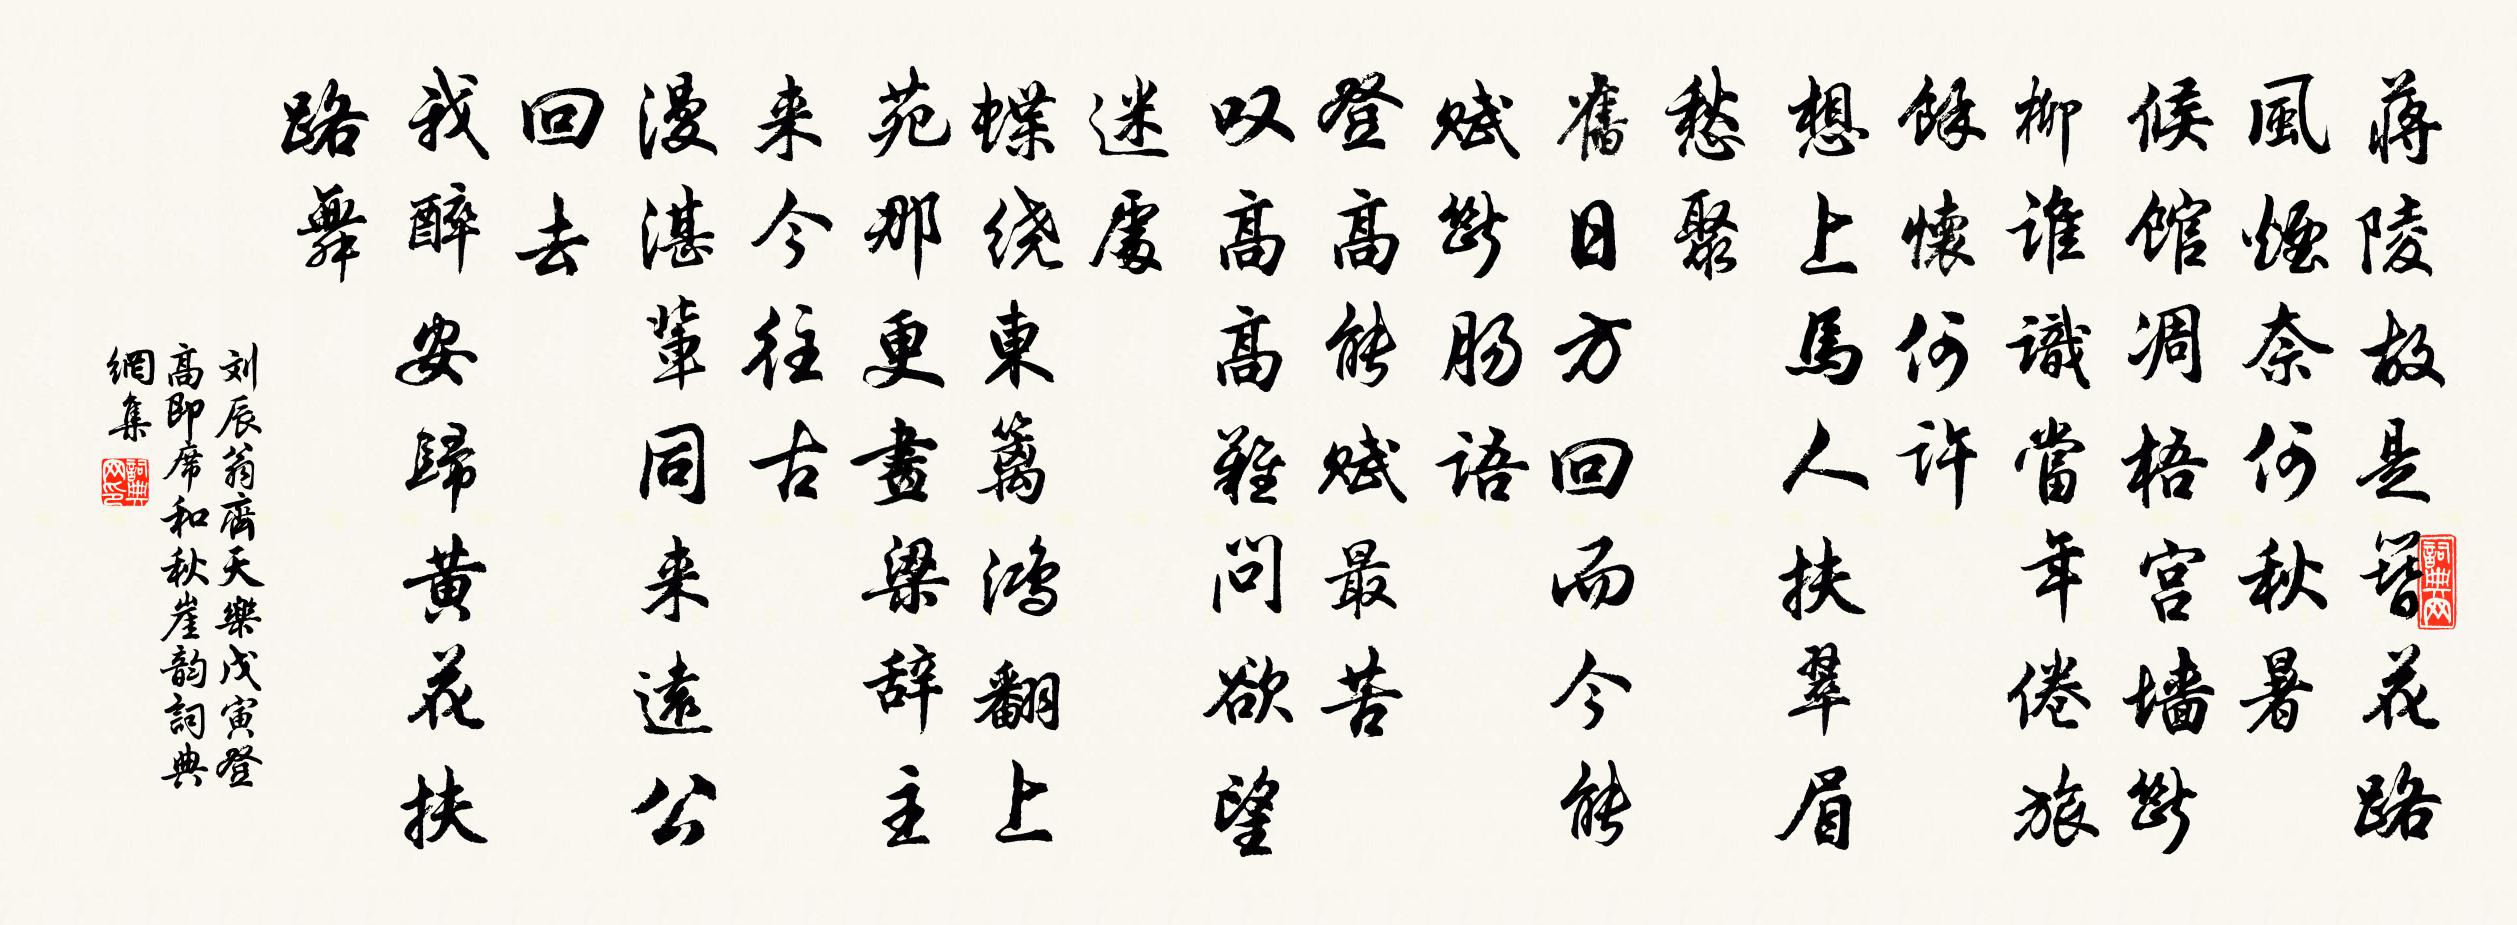 蔣陵故是簪花路
風煙奈何秋暑
候館凋梧宫墙斷
柳谁識當年倦旅
餘懷何许
想上馬人扶翠眉
愁聚
舊日方回而今能
赋斷肠语
登高能赋最苦
叹高高難问欲望
迷處
蝶绕東籬鸿翻上
苑那更畫梁辞主
来今往古
漫湛輩同来遠公
回去
我醉安歸黄花扶
路舞
刘辰翁齊天樂戊寅登
高即席和秋崖韵詞典
網集
詞典网
詞典网印